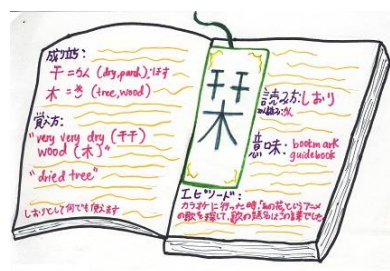 成り立ち:
干=かん (dry, parch), ほす
木=き (tree, wood)
覚え方:
"very very dry (干干)
wood (木)"
"dried tree"
しおりとして何でも使えます
栞
読み方: しおり
意味: bookmark
guidebook
エピソード:
カラオケに行った時、「あの花」というアニメ
の歌を探して、歌の題名はこの漢字でした